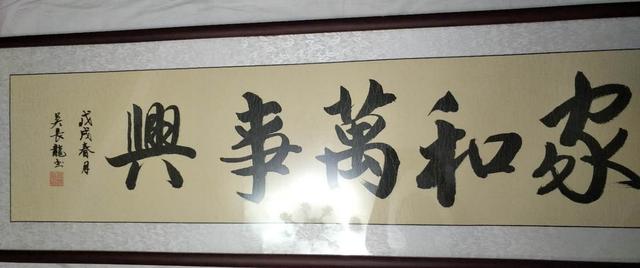 家和萬事興
戊戌春月
吴長龍书